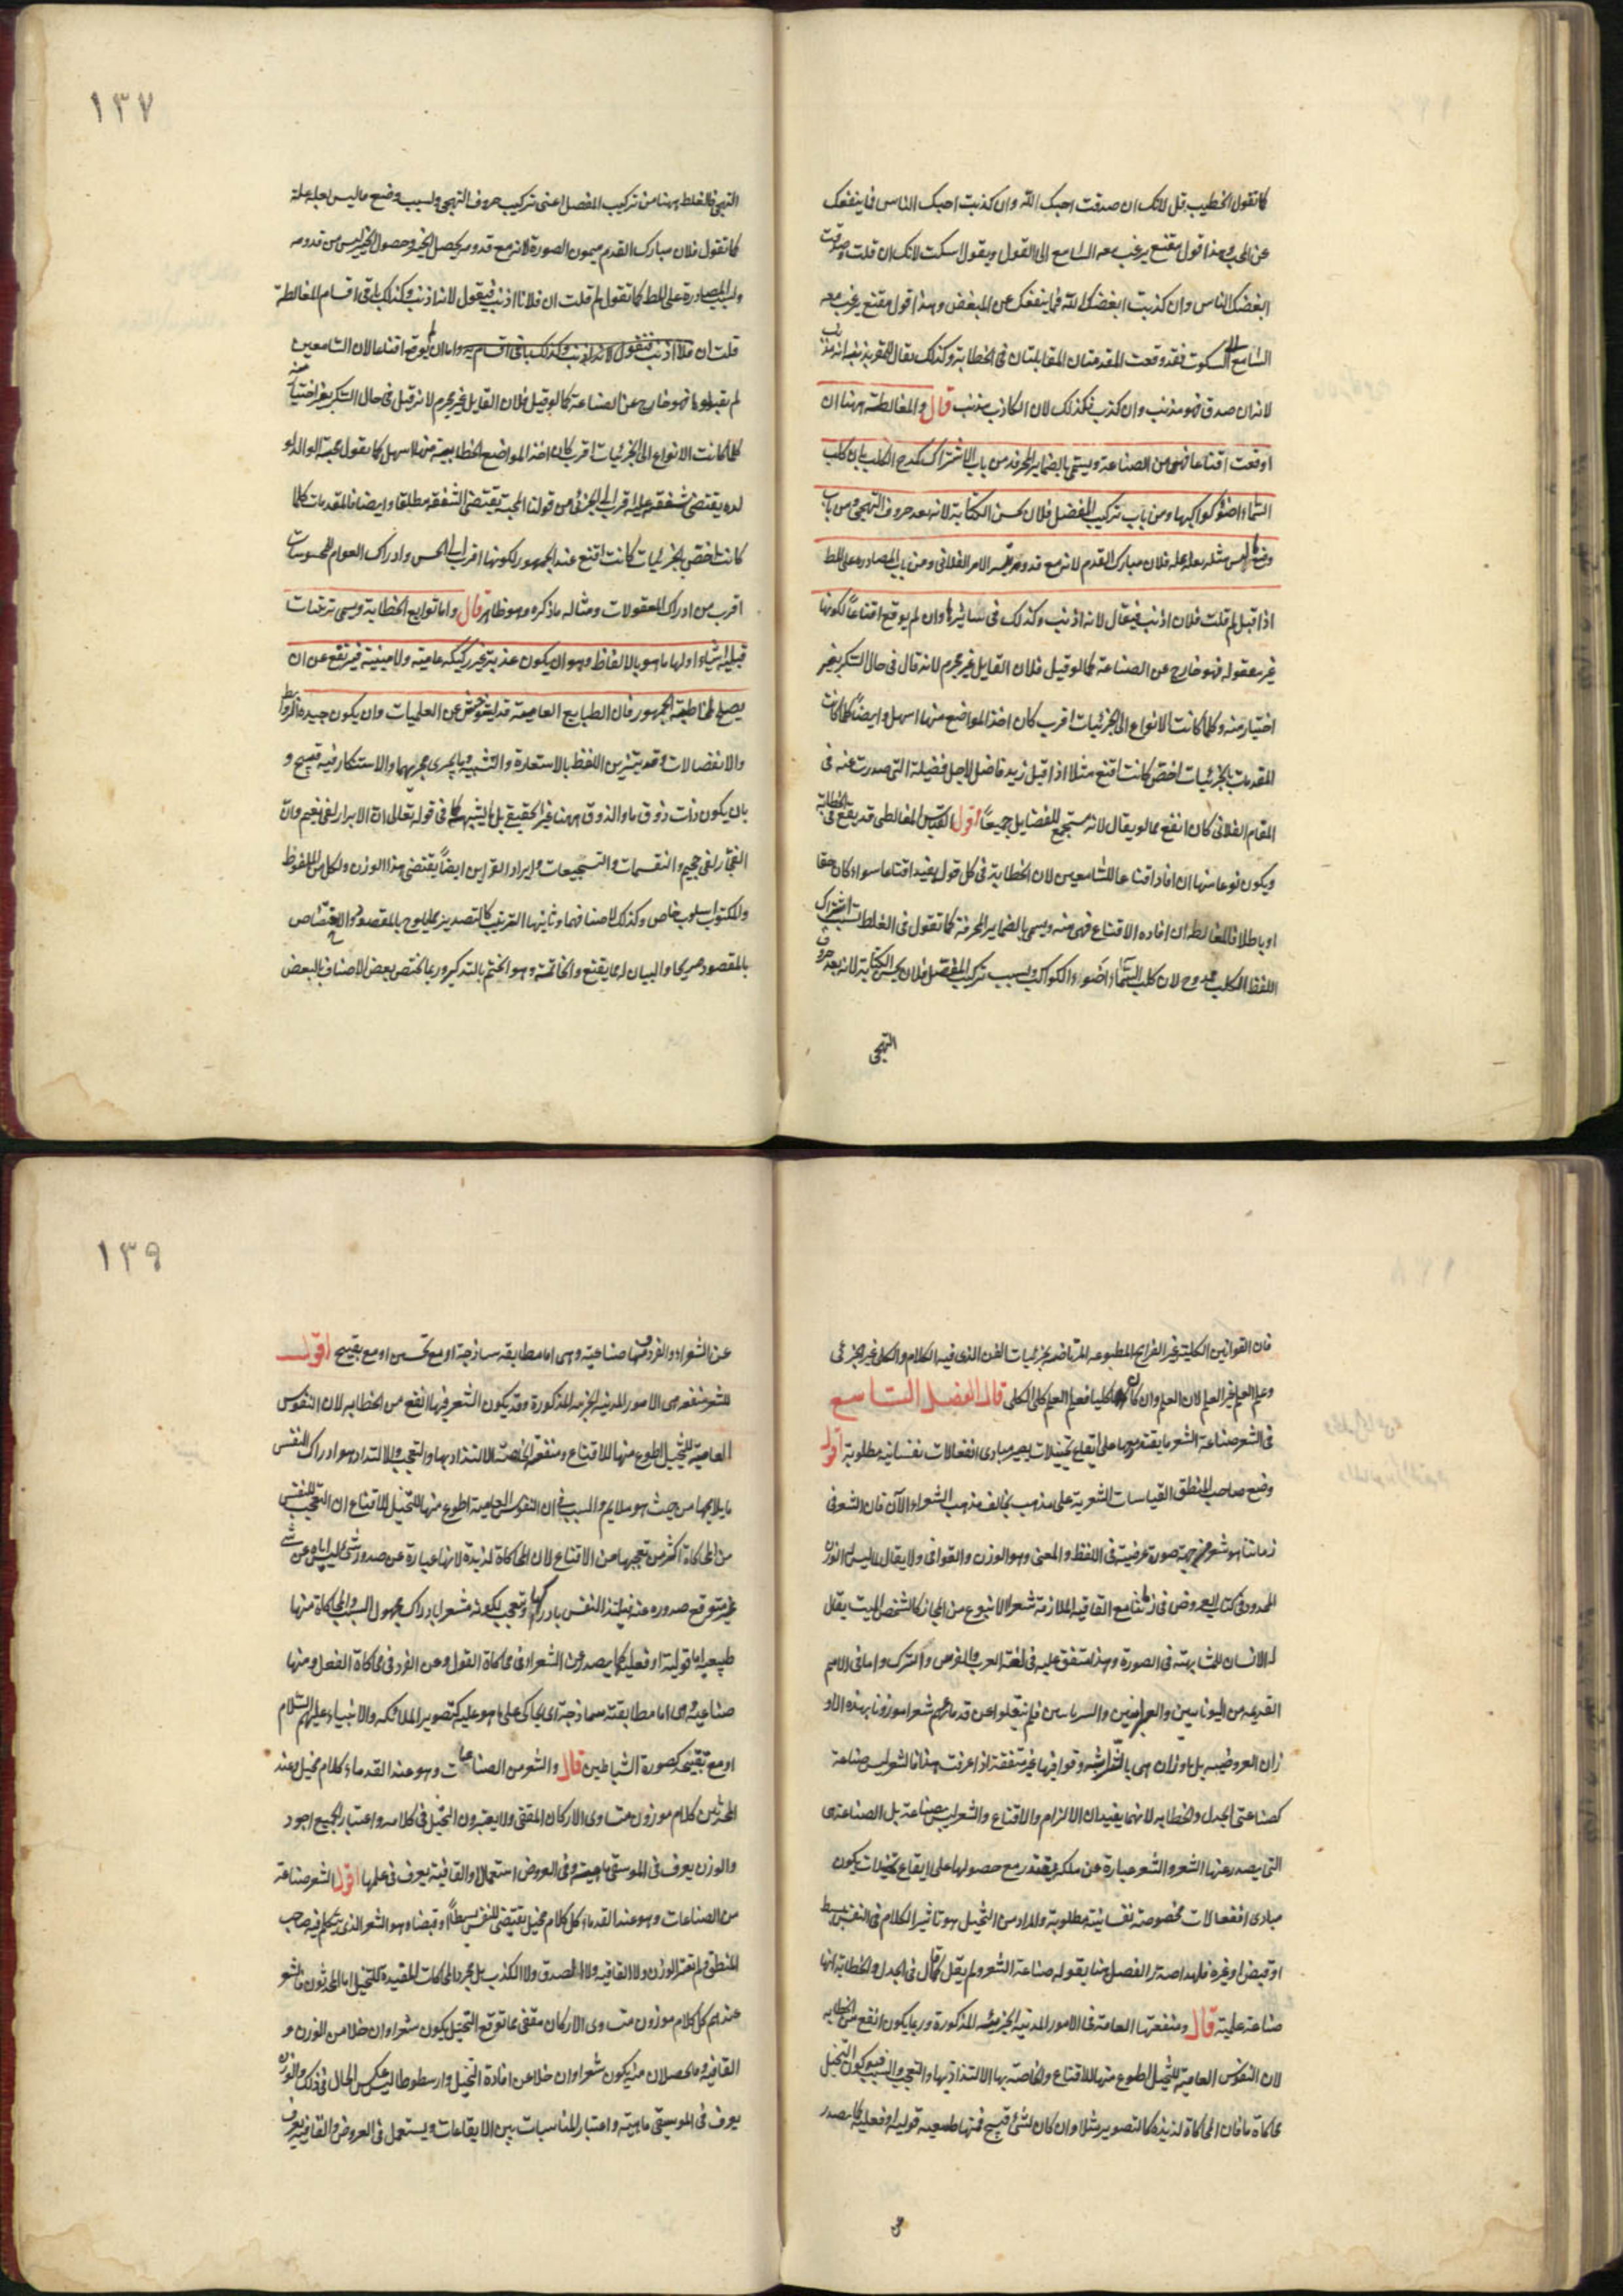 كما تقول الخطيب قل لانك ان صدقت احبك الله وان كذبت احبك الناس فما ينفعك
عن المحب وهذا قول مقنع يرغب معه السامع الى القول ويقول اسكت لانك ان قلت وصدقت
ابغضك الناس وان كذبت ابغضك الله فما ينفعك عن المبغض وهذا قول مقنع يرغب معه
السامع الى السكوت فقد وقعت المقدمتان المقابلتان فى الخطابة وكذلك يقال للمقر بذنبه انه مذنب
لانه ان صدق فهو مذنب وان كذب فكذلك لان الكاذب مذنب قال والمغالطة ههنا ان
اوقعت اقناعا فهى من الصناعة ويسمى بالضماير المحرفة من باب الاشتراك كمدح الكلب بان كلب
السماء اضوء كواكبها ومن باب تركيب المفصل فلان يحسن الكتابة لانه يعد حروف التهجى ومن باب
وضع ما ليس بعلة علة فلان مبارك القدم لانه مع قدومه تيسر الامر الفلانى ومن باب المصادرة على المط
اذا قيل لم قلت فلان اذنب فيقال لانه اذنب وكذلك فى سائرها وان لم يوقع اقناعا لكونها
غير معقوله فهو خارج عن الصناعة كما لو قيل فلان القايل غير مجرم لانه قال فى حال السكر بغير
اختيار منه وكلما كانت الانواع الى الجزئيات اقرب كان اخذ المواضع منها اسهل وايضا كلما كانت
المقدمات بالجزئيات اخص كانت اقنع مثلا اذا قيل زيد فاضل لاجل فضيلة التى صدرت عنه فى
المقام الفلانى كان انفع مما لو يقال لانه مستجمع للفضايل جميعا اقول القياس المغالطى قد يقع فى الخطابة
ويكون نوعا منها ان افاد اقناعا للسامعين لان الخطابة فى كل قول يفيد اقناعا سواء كان حقا
او باطلا فالمغالطه ان افاده الاقناع فهى منه ويسمى بالضماير المحرفة كما تقول فى الغلط بسبب اشتراك
اللفظ الكلب ممدوح لان كلب السماء اضوء الكواكب وبسبب تركيب المفصل فلان يحسن الكتابة لانه يعد حروف
التهجى
١٣٧
التهجى فالغلط ههنا من تركيب المفصل اعنى تركيب حروف التهجى وبسبب وضع ما ليس بعلة علة
كما تقول فلان مبارك القدم ميمون الصورة لانه مع قدومه يحصل الخير وحصول الخير ليس من قدومه
وبسبب المصادرة على المط كما تقول لم قلت ان فلانا اذنب فيقول لانه اذنب وكذلك باقى اقسام المغالطة
قلت ان فلانا اذنب فتقول لانه اذنب وكذلك باقى اقسامه واما ان لم يوقع اقناعا لان السامعين
لم يقبلوها فهو خارج عن الصناعة كما لو قيل فلان القايل غير مجرم لانه قيل فى حال السكر بغير اختيار منه
كلما كانت الانواع الى الجزئيات اقرب كان اخذ المواضع الخطابية منها اسهل كما تقول محبة الوالد لو
لده يقتضى شفقة عليه اقرب الى الجزئى من قولنا المحبة يقتضى الشفقة مطلقا وايضا فالمقدمات كلما
كانت اخص بالجزئيات كانت اقنع عند الجمهور لكونها اقرب الى الحس وادراك العوام للمحسوسات
اقرب من ادراك المعقولات ومثاله ما ذكره وهو ظاهر قال واما توابع الخطابة ويسمى تزيينات
قبلية اشياء اولها ما هو بالالفاظ وهو ان يكون عذبة غير ركيكة عامية ولا مبنية فيرتفع عن ان
يصلح لمخاطبة الجمهور فان الطبايع العامية قد استوحش عن العلميات وان يكون جيدة الروابط
والانفصالات وقد يتزين اللفظ بالاستعارة والتشبيه وما يجرى مجريهما والاستنكار فيه قبيح و
بان يكون ذات ذوق ما والذوق ههنا غير الحقيقى بل ما يشبهه كما فى قوله تعالى ان الابرار لفى نعيم وان
الفجار لفى جحيم والتقسيمات والتسجيعات وايراد القراين ايضا يقتضى هذا الوزن ولكل من الملفوظ
والمكتوب اسلوب خاص وكذلك لاصنافهما وثانيها الترتيب كالتصدير بما يلوح بالمقصود والاقتصاص
بالمقصود صريحا والبيان له بما يقنع والخاتمة وهو الختم بالتذكير وربما يختص بعض الاصناف بالبعض
فان القوانين الكلية غير القرايح المطبوعه المرتاضة بجزئيات الفن الذى فيه الكلام والكلى غير الجزئى
وعلم العلم غير العلم لان العلم وان كان علما كليا فعلم العلم كلى الكلى قال الفصل التاسع
فى الشعر صناعة الشعر ما يقتدر معها على ايقاع تخييلات يصير مبادى انفعالات نفسانية مطلوبة اقول
وضع صاحب المنطق القياسات الشعرية على مذهب يخالف مذهب الشعراء الآن فان الشعر فى
زماننا هو شعر من جهة صورة عرضية فى اللفظ والمعنى وهو الوزن والقوافى ولا يقال لما ليس له الوزن
المحدود فى كتاب العروض فى زماننا مع القافيه الملازمة شعر الا بنوع من المجاز كالشخص الميت يقال
له الانسان للمشابهته فى الصورة وهذا متفق عليه فى لغة العرب والفرس والترك واما فى الامم
القديمه من اليونانيين والعبرانيين والسريانيين فلم ينقلوا عن قدمائهم شعرا موزونا بهذه الاو
زان العروضيه بل باوزان هى بالنثر اشبه وقوافيها غير متفقة اذا عرفت هذا فالشعر ليس صناعة
كصناعتى الجدل والخطابه لانهما يفيدان الالزام والاقناع والشعر ليس بصناعة بل الصناعة هى
التى يصدر عنها الشعر والشعر عبارة عن ملكة يقتدر مع حصولها على ايقاع تخيلات يكون
مبادى انفعالات مخصوصة نفسانية مطلوبة والمراد من التخيل هو تاثير الكلام فى النفس ببسط
او قبض او غيره فلهذا صدر الفصل هنا بقوله صناعة الشعر ولم يقل كما قال فى الجدل والخطابة انها
صناعة علمية قال ومنفعتها العامة فى الامور المدنية الجزئية المذكورة وربما يكون انفع من الخطابه
لان النفوس العامية للتخيل اطوع منها للاقناع والخاصة بها الالتذاذ بها والتعجب والسبب فيه كون التخيل
محاكاة ما فان المحاكاة لذيذة كالتصوير مثلا وان كان لشئ قبيح فمنها طبيعيه قولية او فعلية كما يصدر
١٣٩
عن الشعراء والقرد ومنها صناعية وهى اما مطابقه ساذجة او مع تحسين او مع تقبيح اقول
للشعر منفعه هى الامور المدنية الجزئية المذكورة وقد يكون الشعر فيها انفع من الخطابه لان النفوس
العامية للتخيل اطوع منها للاقناع ومنفعته الخاصة الالتذاذ بها والتعجب والالتذاذ هو ادراك النفس
ما يلايمها من حيث هو ملايم والسبب فى ان النفوس العامية اطوع منها للتخيل للاقناع ان التعجب للنفس
من المحاكاة اكثر من تعجبها من الاقناع لان المحاكاة لذيذة لانها عبارة عن صدور شئ ليس اياه عن شئ
غير متوقع صدوره عنه فيلتذ النفس بادراكها وتعجب لكونه مشعرا بادراك مجهول السبب والمحاكاة منها
طبيعيه اما قولية او فعلية كما يصدر عن الشعراء فى محاكاة القول وعن القرد فى محاكاة الفعل ومنها
صناعية وهى اما مطابقة ساذجة اى يحاكى على ما هو عليه كتصوير الملائكه والانبياء عليهم السلام
او مع تقبيح كصورة الشياطين قال والشعر من الصناعات وهو عند القدماء كلام مخيل وعند
المحدثين كلام موزون متساوى الاركان المقفى ولا يعتبرون التخيل فى كلامه واعتبار الجميع اجود
والوزن يعرف فى الموسيقى ماهيته وفى العروض استعمالا والقافية يعرف فى علمها اقول الشعر صناعة
من الصناعات وهو عند القدماء كل كلام مخيل يقتضى للنفس بسطا او قبضا وهو الشعر الذى يتكلم فيه صاحب
المنطق ولم يعتبر الوزن ولا القافيه ولا الصدق ولا الكذب بل مجرد المحاكات المفيدة للتخيل اما المحدثون فالشعر
عندهم كل كلام موزون متساوى الاركان مقفى مما توقع التخيل يكون شعرا وان خلا من الوزن و
القافيه وما يحصلان منه يكون شعرا وان خلا عن افادة التخيل وارسطوطاليس عكس الحال فى ذلك والوزن
يعرف فى الموسيقى ماهيته واعتبار المناسبات بين الايقاعات ويستعمل فى العروض والقافية يعرف